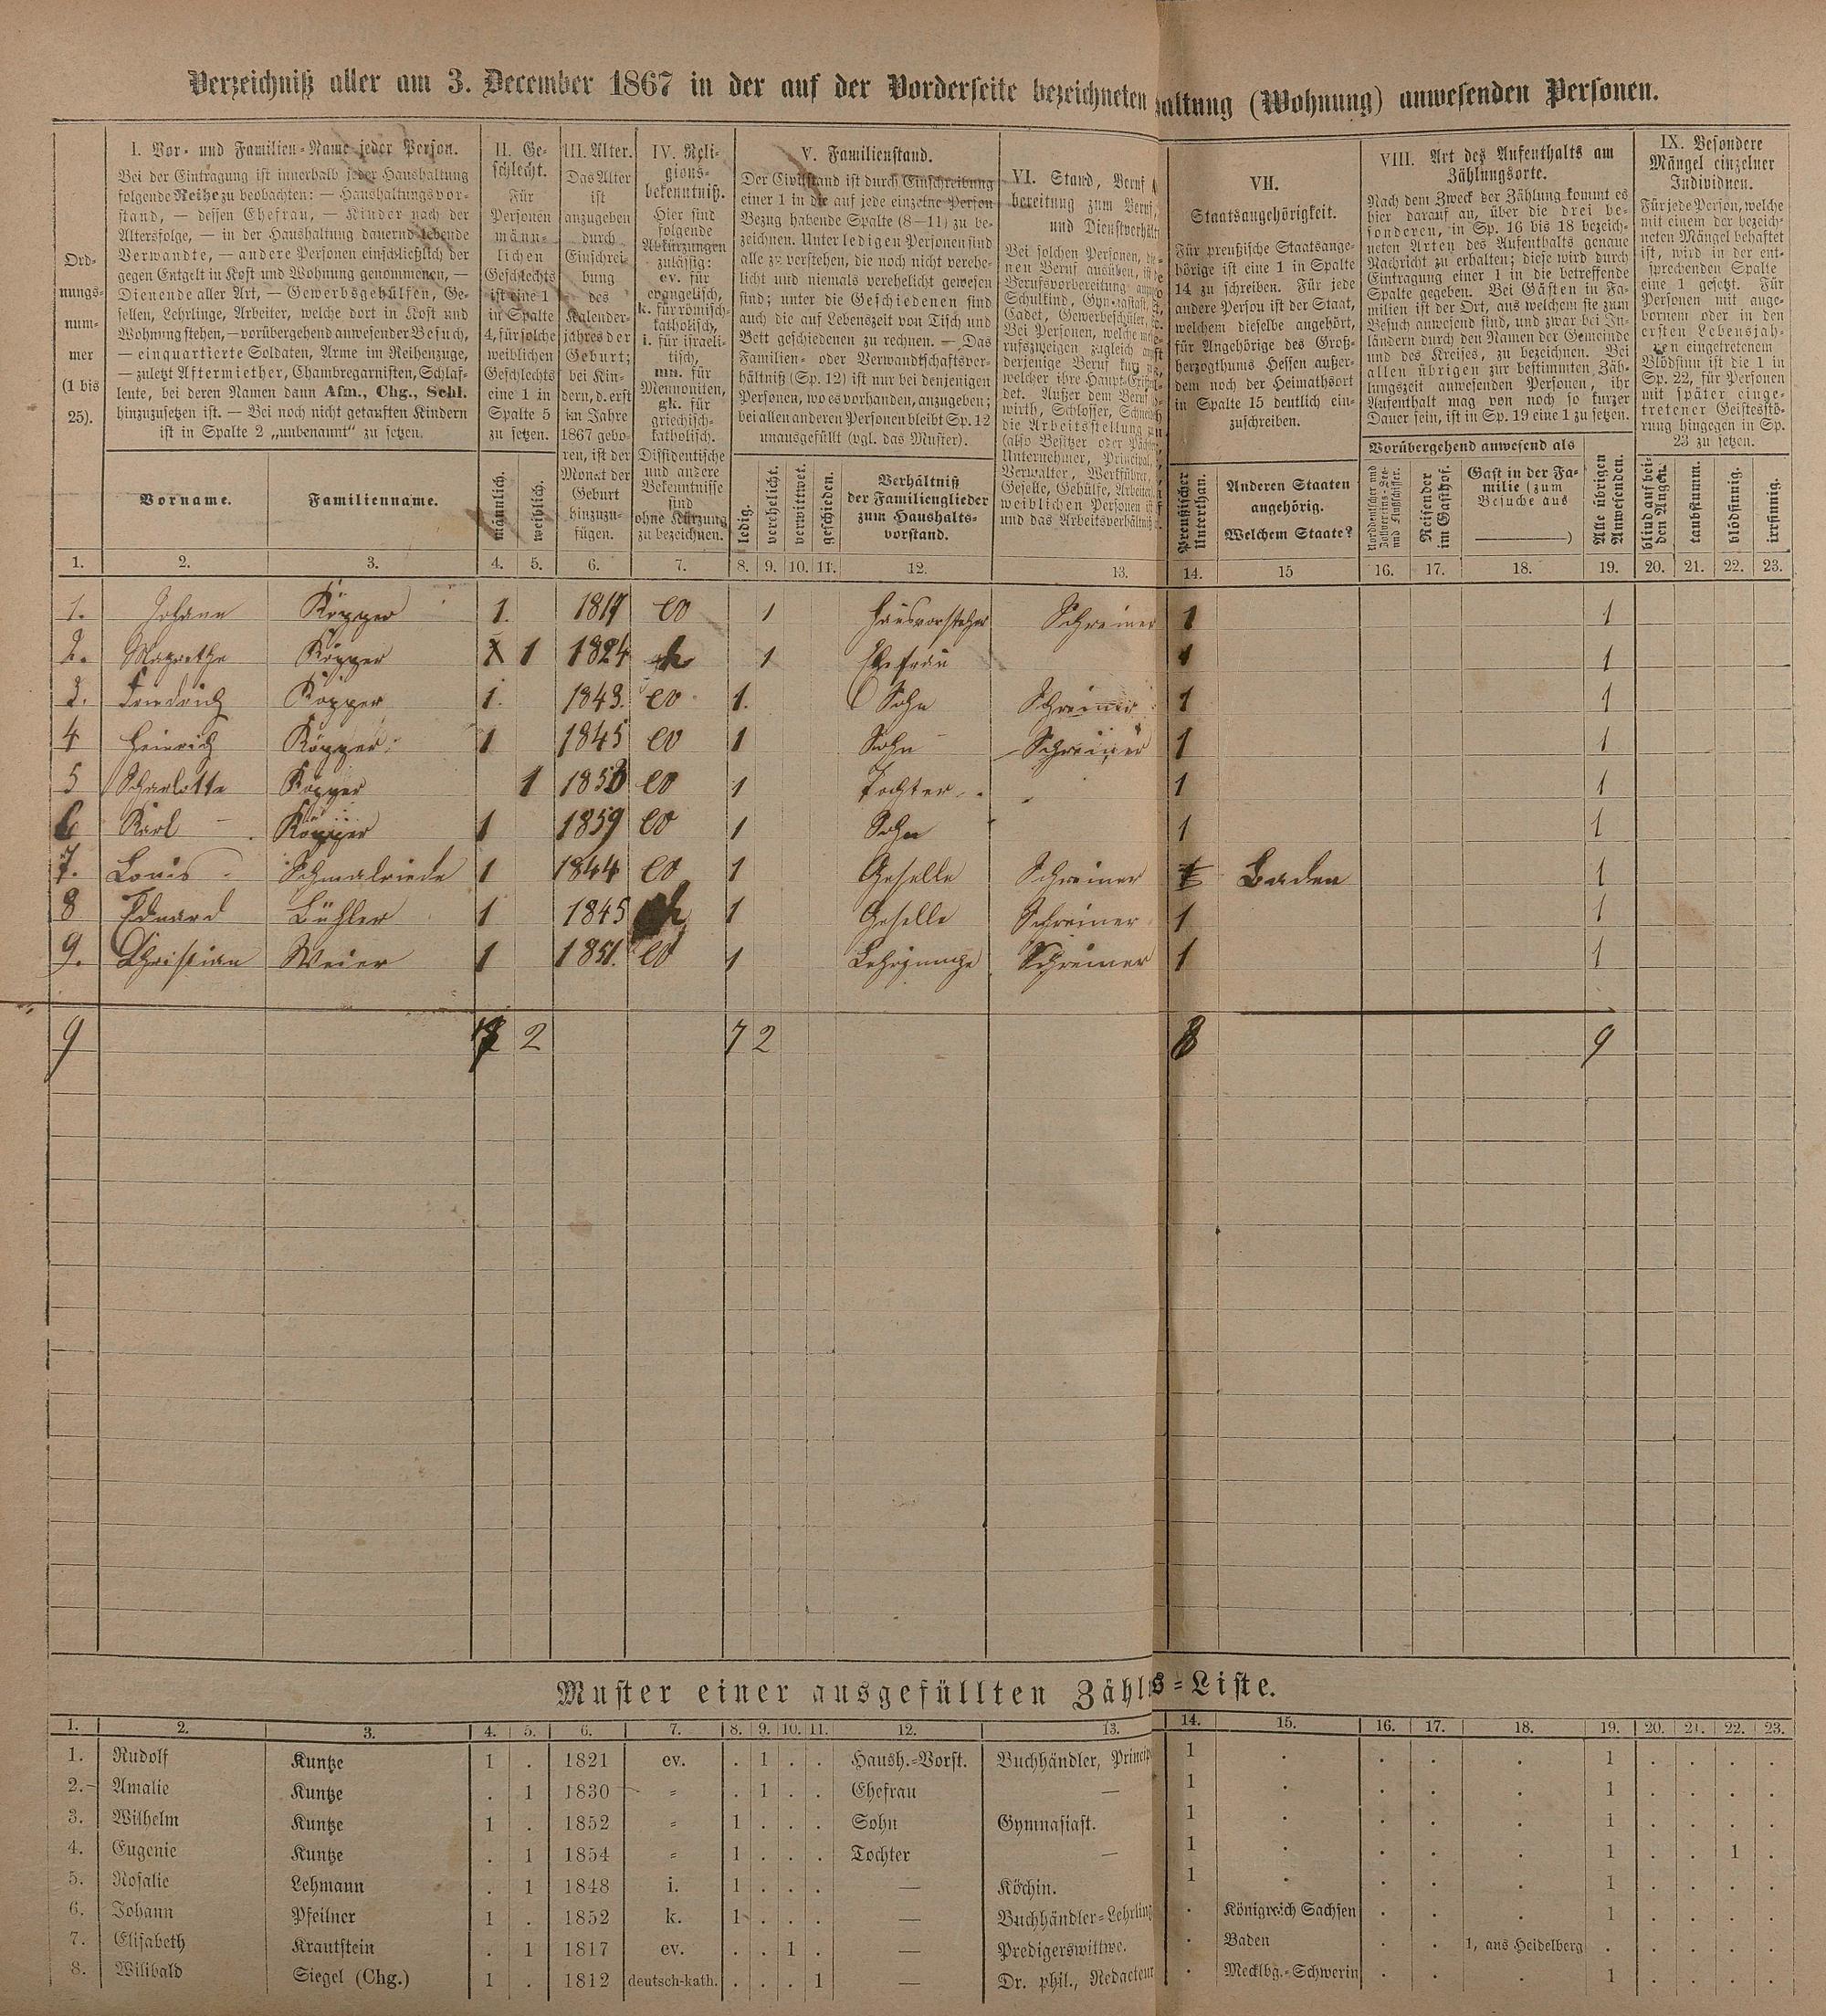 Verzeichniß aller am 3. December 1867 in der auf der Vorderseite bezeichneten haltung (Wohnung) anwesenden Personen.
Ord-
nungs-
num-
mer
(1 bis
25).
I. Vor- und Familien-Name jeder Person.
Bei der Eintragung ist innerhalb jeder Haushaltung
folgende Reihe zu beobachten: — Haushaltungsvor-
stand, — dessen Ehefrau, — Kinder nach der
Altersfolge, — in der Haushaltung dauernd lebende
Verwandte, — andere Personen einschließlich der
gegen Entgelt in Kost und Wohnung genommenen, —
Dienende aller Art, — Gewerbsgehülfen, Ge-
sellen, Lehrlinge, Arbeiter, welche dort in Kost und
Wohnung stehen, — vorübergehend anwesender Besuch,
— einquartierte Soldaten, Arme im Reihenzuge,
— zuletzt Aftermiether, Chambregarnisten, Schlaf-
leute, bei deren Namen dann Afm., Chg., Schl.
hinzuzusetzen ist. — Bei noch nicht getauften Kindern
ist in Spalte 2 „unbenannt“ zu setzen.
Vorname. Familienname.
II. Ge-
schlecht.
Für
Personen
männ-
lichen
Geschlechts
ist eine 1
in Spalte
4, für solche
weiblichen
Geschlechts
eine 1 in
Spalte 5
zu setzen.
männlich. weiblich.
III. Alter.
Das Alter
ist
anzugeben
durch
Einschrei-
bung
des
Kalender-
jahres der
Geburt;
bei Kin-
dern, d. erst
im Jahre
1867 gebo-
ren, ist der
Monat der
Geburt
hinzuzu-
fügen.
IV. Reli-
gions-
bekenntniß.
Hier sind
folgende
Abkürzungen
zulässig:
ev. für
evangelisch,
k. für römisch-
katholisch,
i. für israeli-
tisch,
mn. für
Mennoniten,
gk. für
griechisch-
katholisch.
Dissidentische
und andere
Bekenntnisse
sind
ohne Kürzung
zu bezeichnen.
V. Familienstand.
Der Civilstand ist durch Einschreibung
einer 1 in die auf jede einzelne Person
Bezug habende Spalte (8—11) zu be-
zeichnen. Unter ledigen Personen sind
alle zu verstehen, die noch nicht verehe-
licht und niemals verehelicht gewesen
sind; unter die Geschiedenen sind
auch die auf Lebenszeit von Tisch und
Bett geschiedenen zu rechnen. — Das
Familien- oder Verwandtschaftsver-
hältniß (Sp. 12) ist nur bei denjenigen
Personen, wo es vorhanden, anzugeben;
bei allen anderen Personen bleibt Sp. 12
unausgefüllt (vgl. das Muster).
ledig. verehelicht. verwittwet. geschieden.
Verhältniß
der Familienglieder
zum Haushalts-
vorstand.
VI. Stand, Beruf
bereitung zum Beruf,
und Dienstverhält
Bei solchen Personen,
nen Beruf ausüben, ist
Berufsvorbereitung
Schulkind, Gymnasiast,
Cadet, Gewerbeschüler,
Bei Personen, welche
rufszweigen zugleich
derjenige Beruf kurz
welcher ihre Haupt-
det. Außer dem Beruf
wirth, Schlosser,
die Arbeitsstellung
(also Besitzer oder Pächter,
Unternehmer, Principal,
Verwalter, Werkführer,
Geselle, Gehülfe, Arbeiter
weiblichen Personen
und das Arbeitsverhältniß
VII.
Staatsangehörigkeit.
Für preußische Staatsange-
hörige ist eine 1 in Spalte
14 zu schreiben. Für jede
andere Person ist der Staat,
welchem dieselbe angehört,
für Angehörige des Groß-
herzogthums Hessen außer-
dem noch der Heimathsort
in Spalte 15 deutlich ein-
zuschreiben.
Preußischer
Unterthan.
Anderen Staaten
angehörig.
Welchem Staate?
VIII. Art des Aufenthalts am
Zählungsorte.
Nach dem Zweck der Zählung kommt es
hier darauf an, über die drei be-
sonderen, in Sp. 16 bis 18 bezeich-
neten Arten des Aufenthalts genaue
Nachricht zu erhalten; diese wird durch
Eintragung einer 1 in die betreffende
Spalte gegeben. Bei Gästen in Fa-
milien ist der Ort, aus welchem sie zum
Besuch anwesend sind, und zwar bei In-
ländern durch den Namen der Gemeinde
und des Kreises, zu bezeichnen. Bei
allen übrigen zur bestimmten Zäh-
lungszeit anwesenden Personen, ihr
Aufenthalt mag von noch so kurzer
Dauer sein, ist in Sp. 19 eine 1 zu setzen.
Vorübergehend anwesend als
Norddeutscher und
Zollvereins-See-
und Flußschiffer.
Reisender
im Gasthof.
Gast in der Fa-
milie (zum
Besuche aus
)
Alle übrigen
Anwesenden.
IX. Besondere
Mängel einzelner
Individuen.
Für jede Person, welche
mit einem der bezeich-
neten Mängel behaftet
ist, wird in der ent-
sprechenden Spalte
eine 1 gesetzt. Für
Personen mit ange-
bornem oder in den
ersten Lebensjah-
ren eingetretenem
Blödsinn ist die 1 in
Sp. 22, für Personen
mit später einge-
tretener Geistesstö-
rung hingegen in Sp.
23 zu setzen.
blind auf bei-
den Augen.
taubstumm.
blödsinnig.
irrsinnig.
1. 2. 3. 4. 5. 6. 7. 8. 9. 10. 11. 12. 13. 14. 15 16. 17. 18. 19. 20. 21. 22. 23.
1. Johann Köpper 1. 1817 ev 1 Hausvorsteher Schreiner 1 1
2. Magrethe Köpper 1 1824 k 1 Ehefrau 1 1
3. Friedrich Köpper 1. 1843. ev 1. Sohn Schreiner 1 1
4 Heinrich Köpper 1 1845 ev 1 Sohn Schreiner 1 1
5 Scharlotte Köpper 1 185 ev 1 Tochter 1 1
6 Karl Köpper 1 1859 ev 1 Sohn 1 1
7. Louis Schmalriede 1 1844 ev 1 Geselle Schreiner Baden 1
8 Eduard Bühler 1 1845 k 1 Geselle Schreiner 1 1
9. Christian Weier 1 1851. ev 1 Lehrjunge Schreiner 1 1
9 7 2 7 2 8 9
Muster einer ausgefüllten Zähl s-Liste.
1. 2. 3. 4. 5. 6. 7. 8. 9. 10. 11. 12. 13. 14. 15. 16. 17. 18. 19. 20. 21. 22. 23.
1. Rudolf Kuntze 1 . 1821 ev. . 1 . . Haush.-Vorst. Buchhändler, Princip 1 . . . . 1 . . . .
2. Amalie Kuntze . 1 1830 " . 1 . . Ehefrau — 1 . . . . 1 . . . .
3. Wilhelm Kuntze 1 . 1852 " 1 . . . Sohn Gymnasiast. 1 . . . . 1 . . . .
4. Eugenie Kuntze . 1 1854 " 1 . . . Tochter — 1 . . . . 1 . . 1 .
5. Rosalie Lehmann . 1 1848 i. 1 . . . — Köchin. 1 . . . . 1 . . . .
6. Johann Pfeilner 1 . 1852 k. 1 . . . — Buchhändler-Lehrling . Königreich Sachsen . . . 1 . . . .
7. Elisabeth Krautstein . 1 1817 ev. . . 1 . — Predigerswittwe. . Baden . . 1, aus Heidelberg . . . . .
8. Wilibald Siegel (Chg.) 1 . 1812 deutsch-kath. . . . 1 — Dr. phil., Redacteur . Mecklbg.-Schwerin . . . 1 . . . .